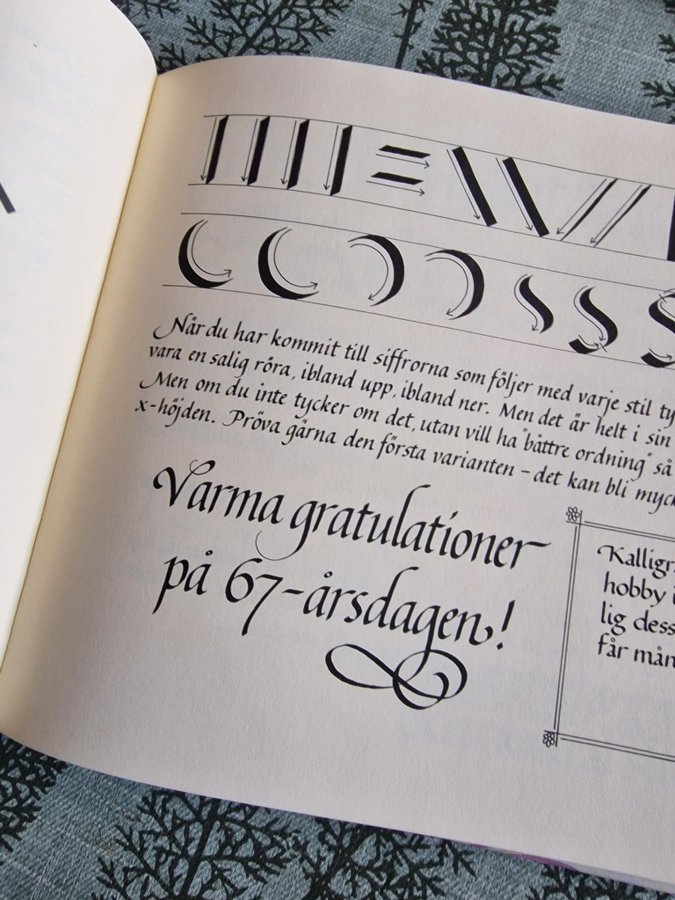 Når du har kommit till siffrorna som följer med varje stil
vara en salig röra, ibland upp, ibland ner. Men det är helt i sin
Men om du inte tycker om det, utan vill ha "bättre ordning" så
x-höjden. Pröva gärna den första varianten – det kan bli
Varma gratulationer
på 67-årsdagen!
hobby
lig
får